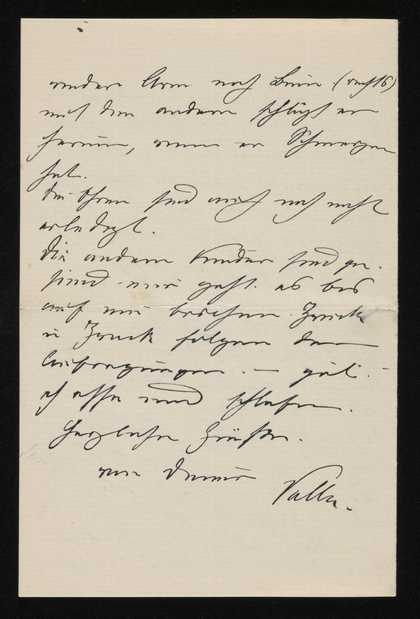 andere Arm noch Bein (rechts)
mit den andern schlägt er
herum, wenn er Schmerzen
hat.
Die Ohren sind auch noch nicht
erledigt.
Die andern Kinder sind ge-
sund mir geht es bis
auf
u Zuck folgen den
Aufregungen. – gut. –
ich esse und schlafe.
Herzliche Grüße.
von Deiner